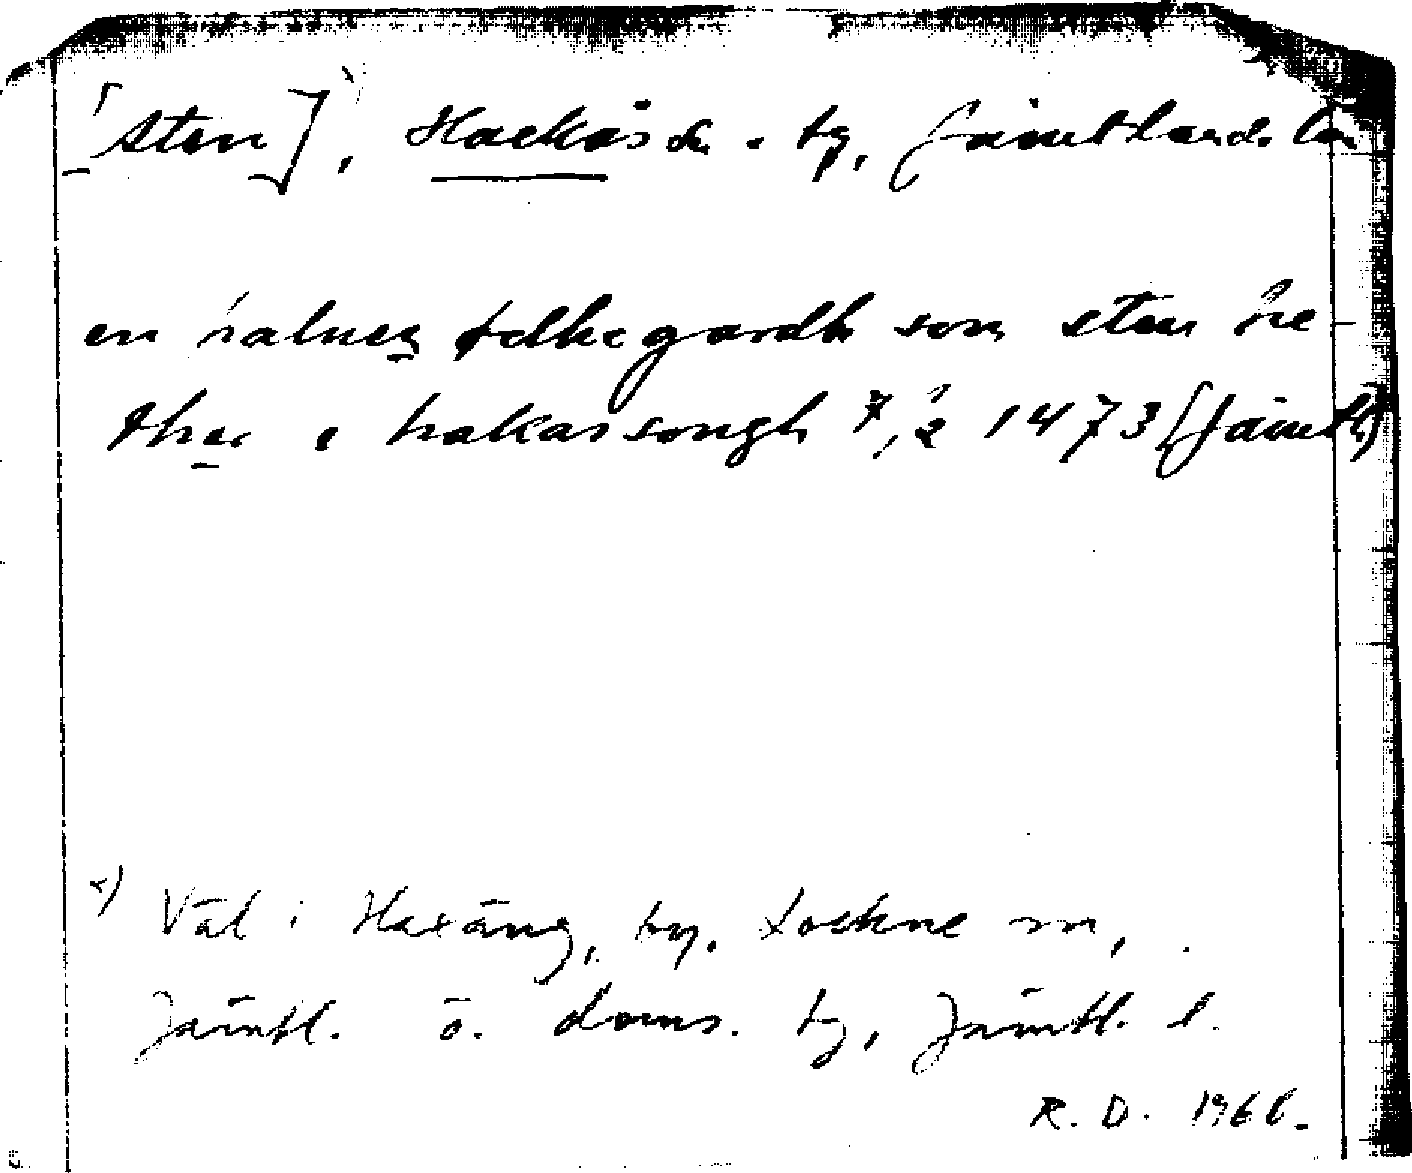 [sten]ˣ⁾, Hackås sn o tg, Jämtlands län
en salnez felhegardh som sten he
ther i hakassongh 7/2 1473 (Jämtl)
x) Väl i Haxäng, by, Lockne sn,
Jämtl. ö. doms. tg, Jämtl. l.
R. D. 1966.